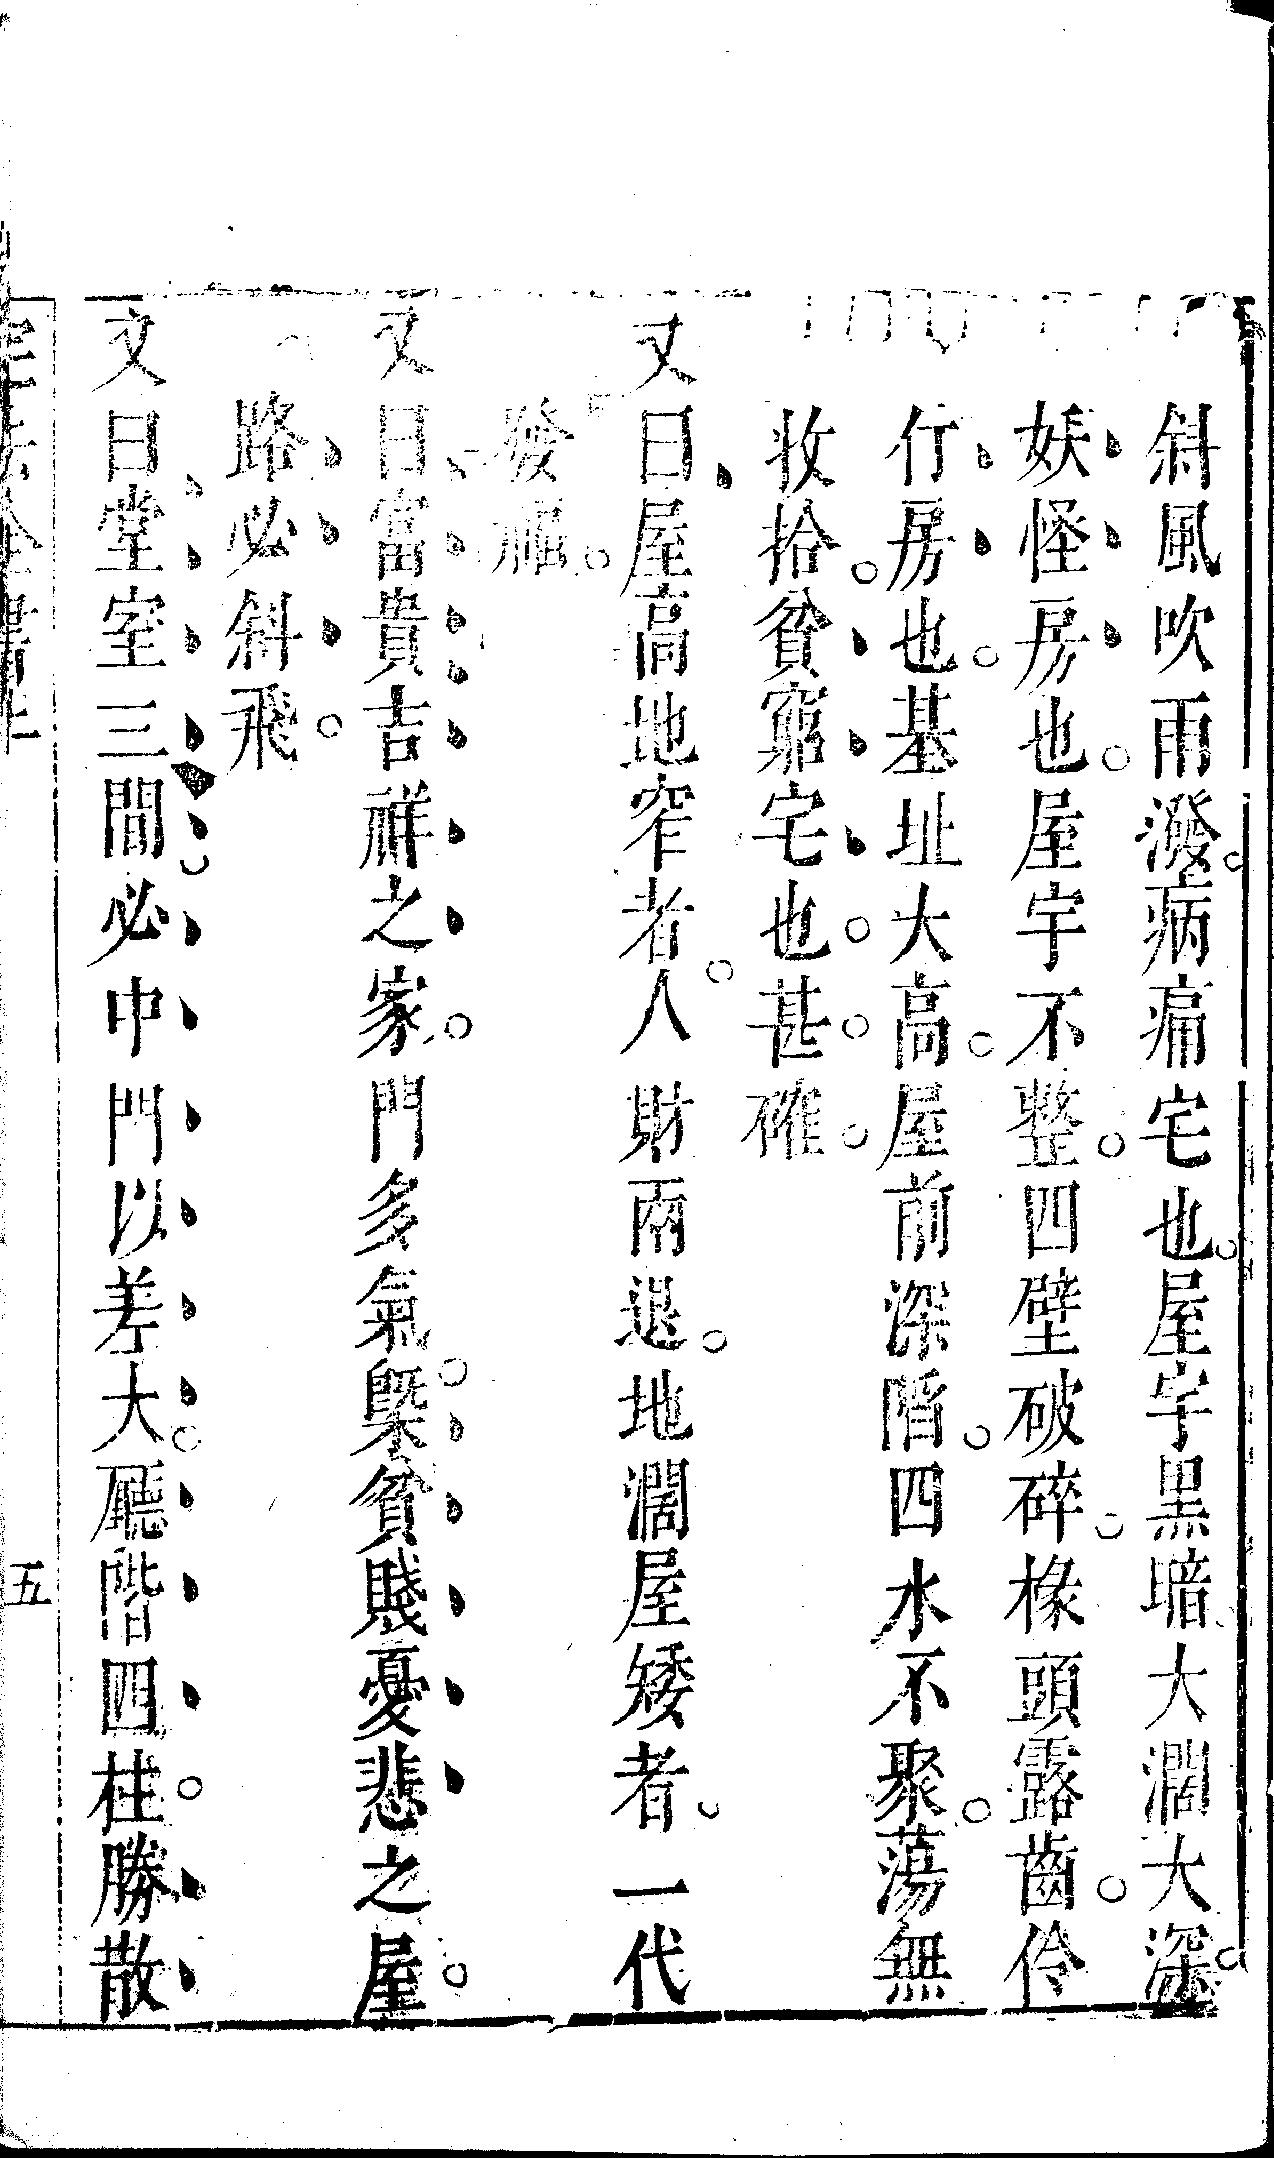 斜風吹雨潑病痛宅也屋宇黑暗大濶大深
妖怪房也屋宇不整四壁破碎椽頭露齒伶
行房也基址大高屋前深陷四水不聚蕩無
收拾貧窮宅也甚確
又曰屋高地窄者人財兩退地濶屋矮者一代
發福
又曰富貴吉祥之家門多氣槩貧賤憂悲之屋
路必斜飛
又曰堂室三間必中門以差大廳階四柱勝散
五